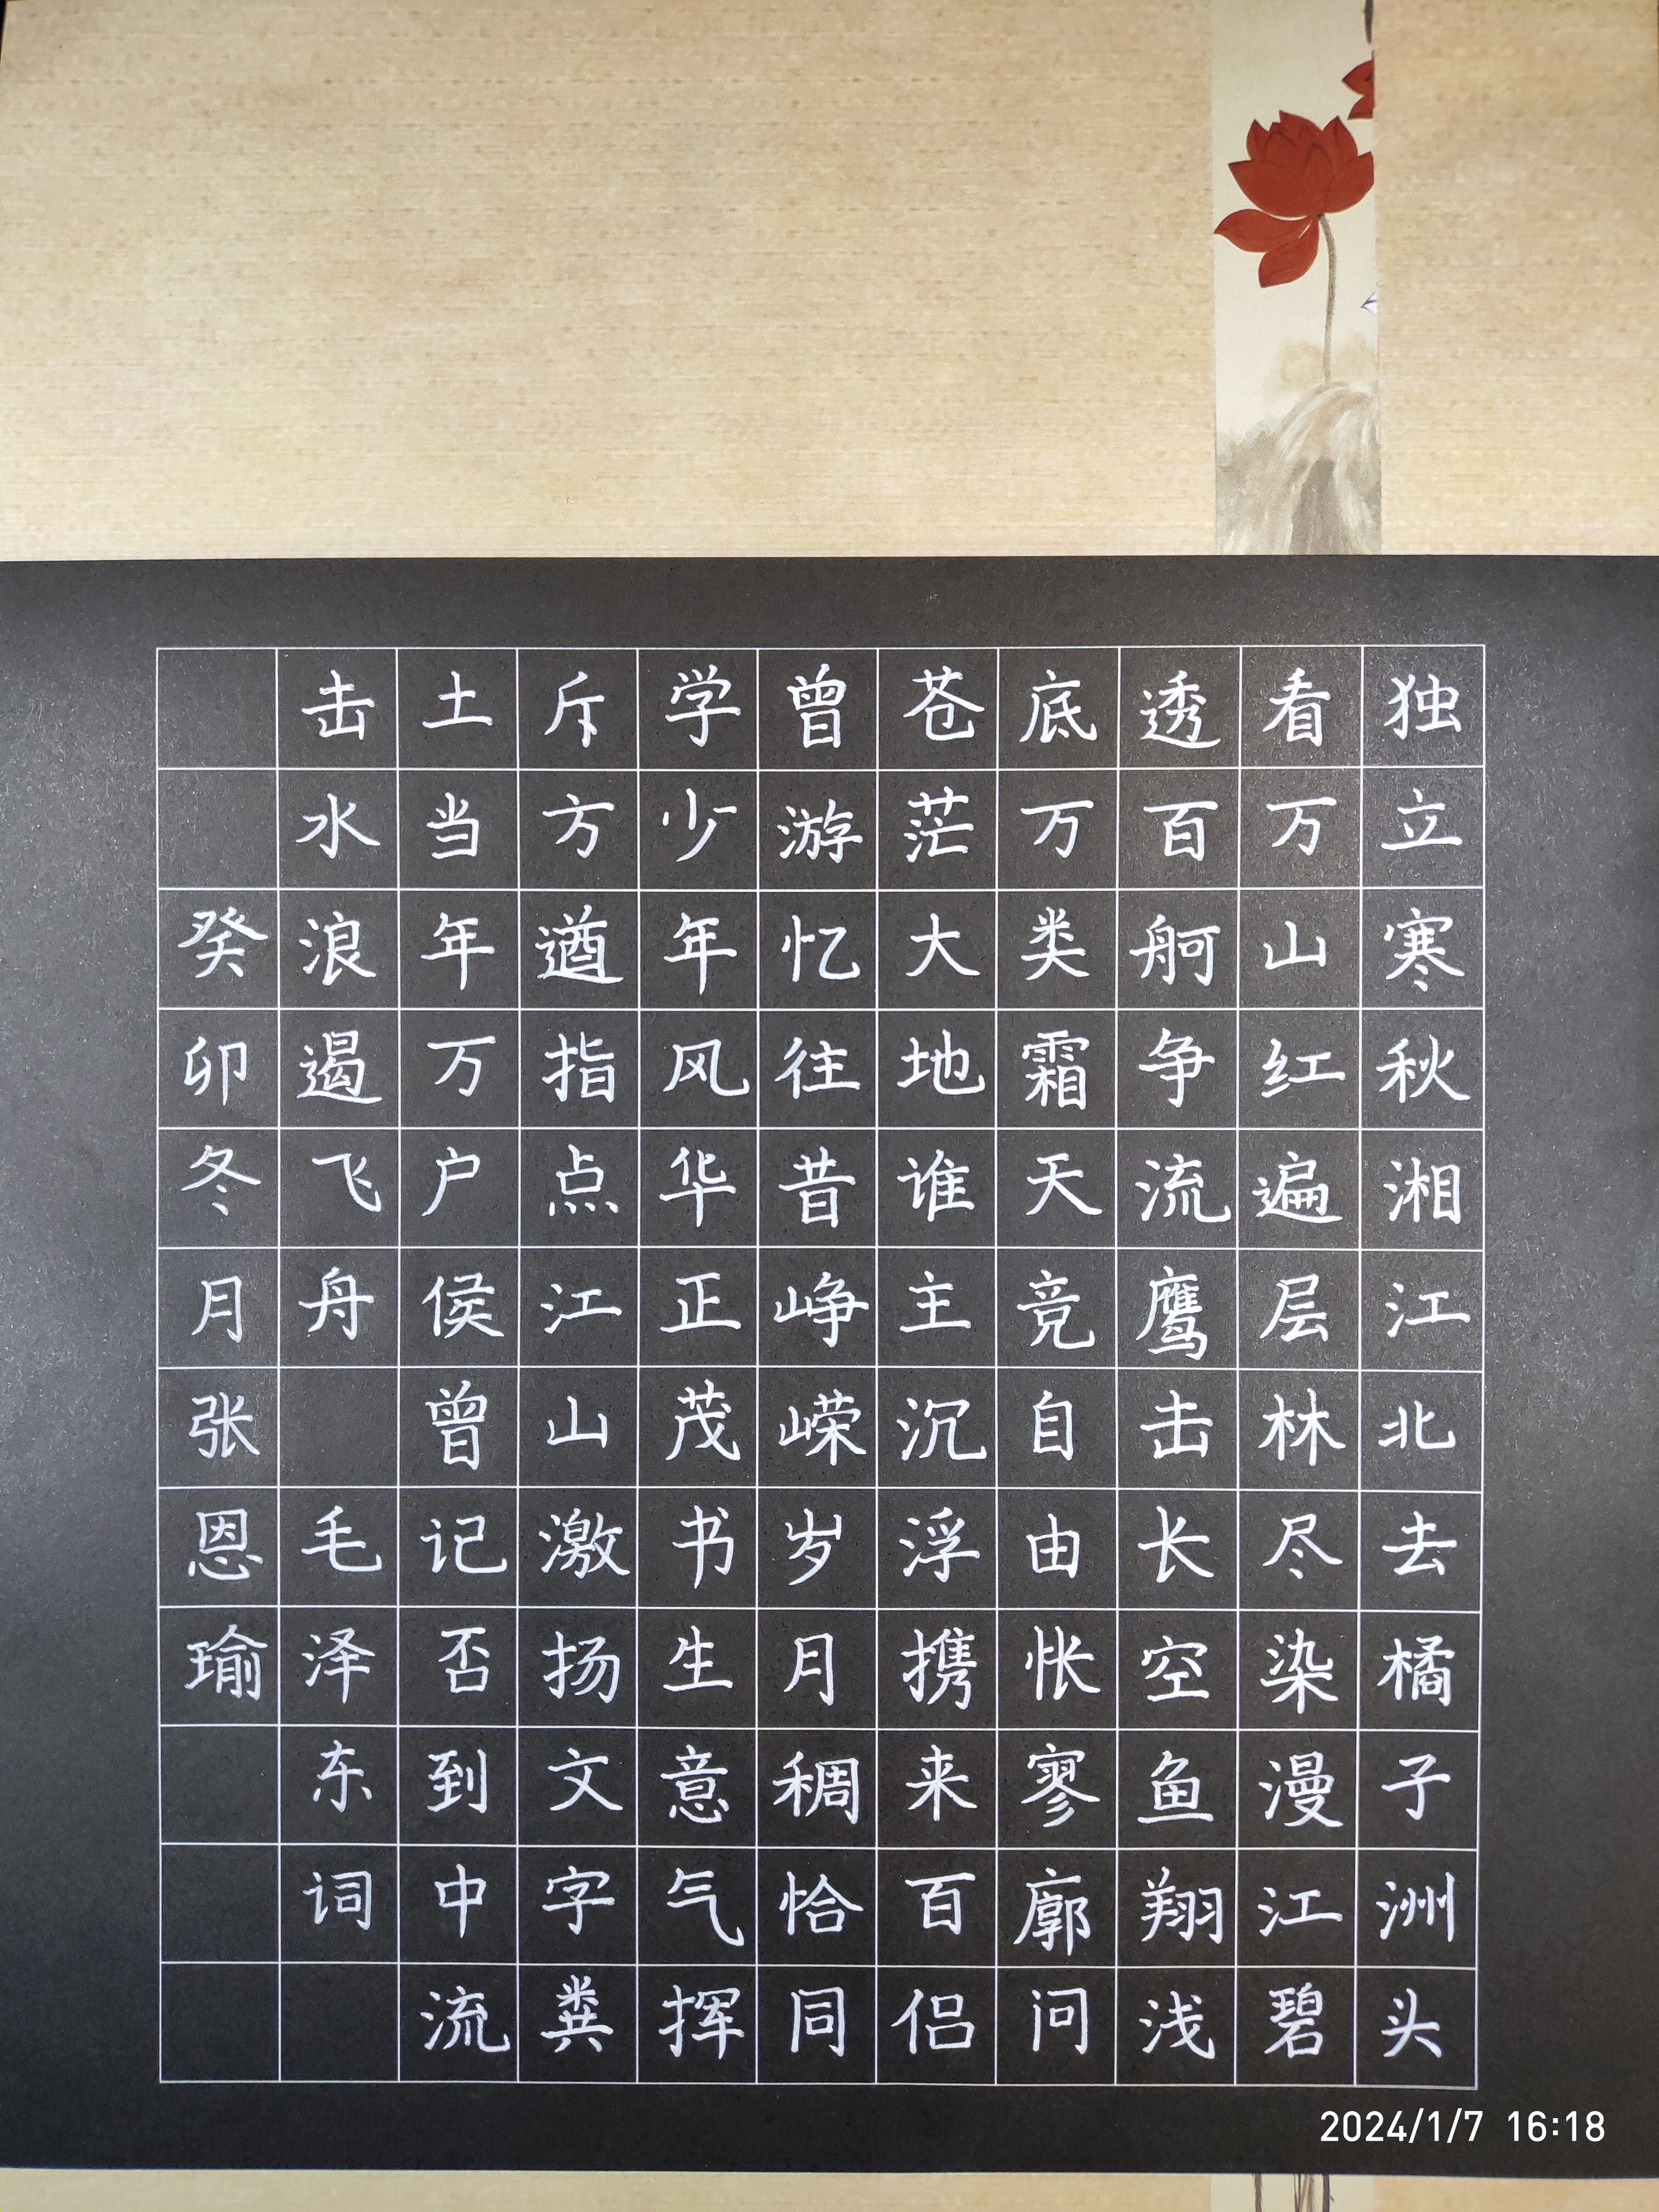 独立寒秋湘江北去橘子洲头
看万山红遍层林尽染漫江碧
透百舸争流鹰击长空鱼翔浅
底万类霜天竞自由怅寥廓问
苍茫大地谁主沉浮携来百侣
曾游忆往昔峥嵘岁月稠恰同
学少年风华正茂书生意气挥
斥方遒指点江山激扬文字粪
土当年万户侯曾记否到中流
击水浪遏飞舟 毛泽东词
癸卯冬月张恩瑜
2024/1/7 16:18